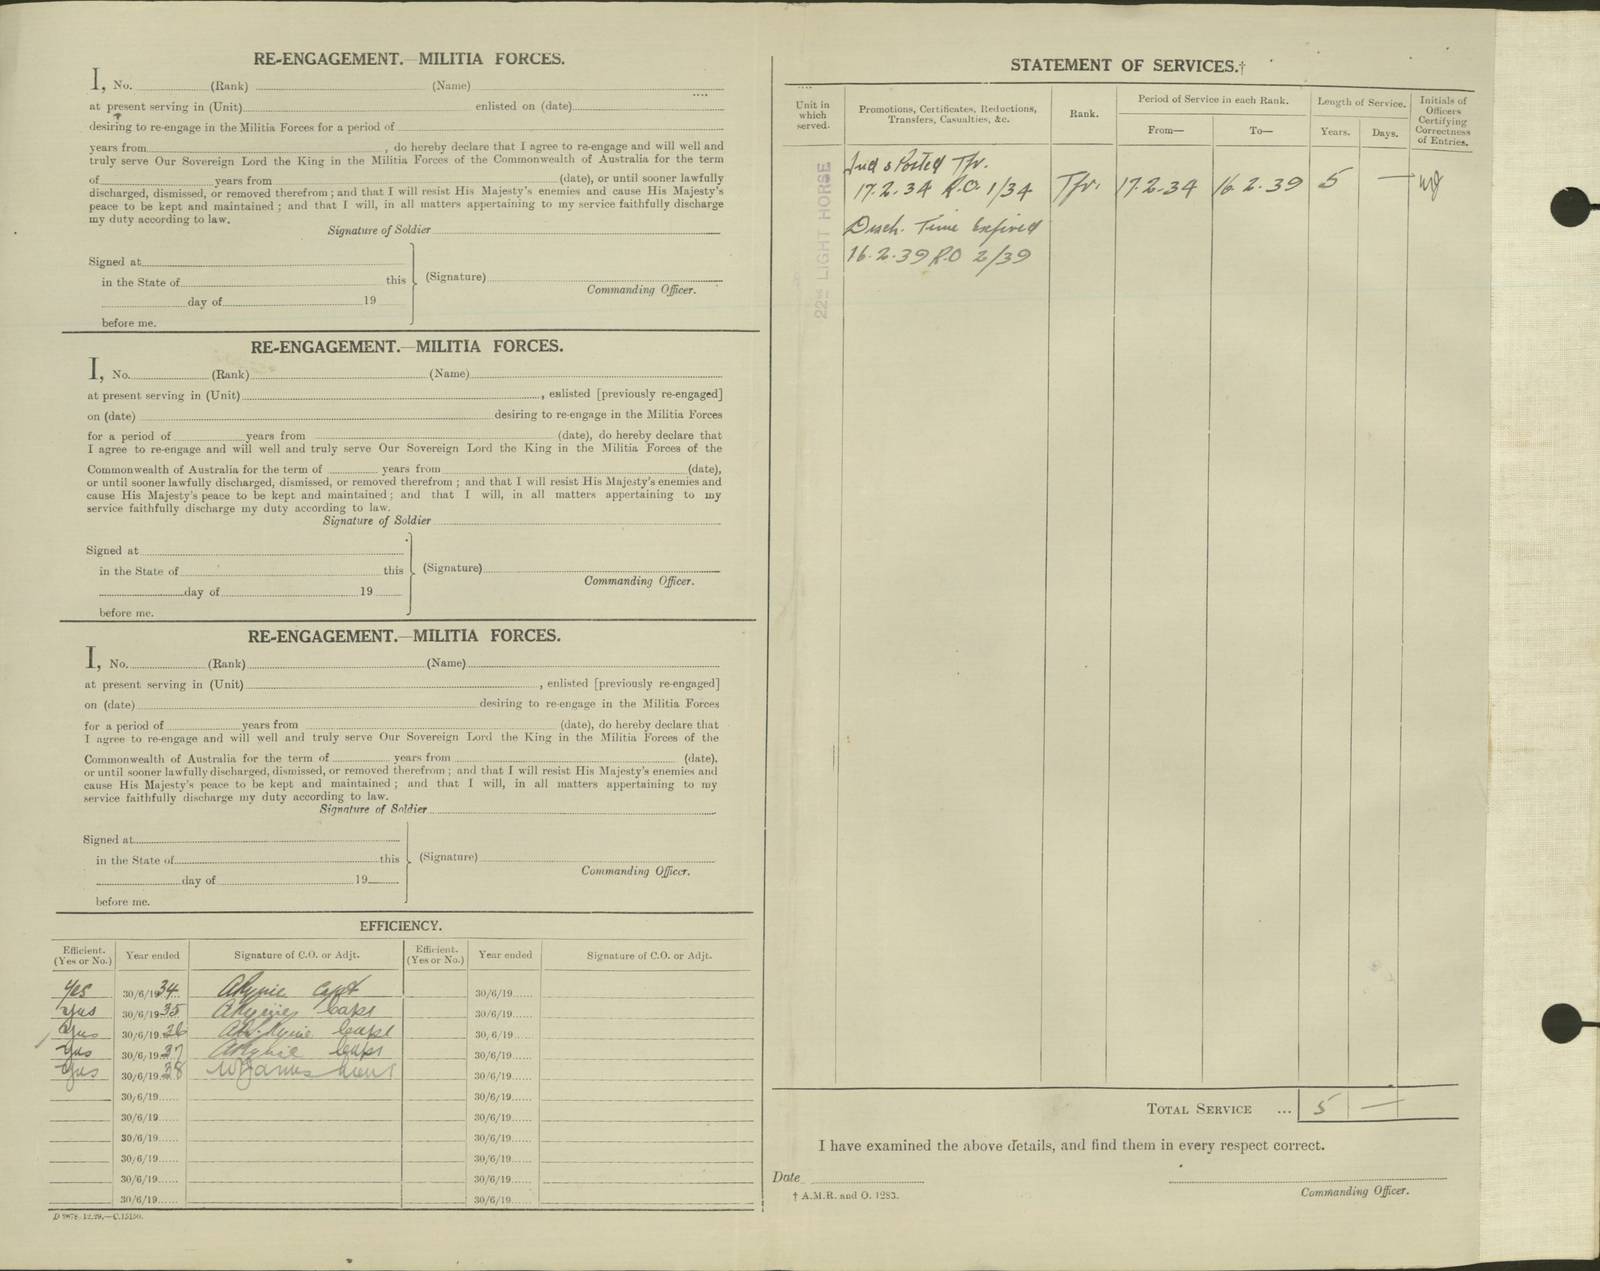 RE-ENGAGEMENT.—MILITIA FORCES.
I, No. (Rank) (Name)
at present serving in (Unit) enlisted on (date)
desiring to re-engage in the Militia Forces for a period of
years from , do hereby declare that I agree to re-engage and will well and
truly serve Our Sovereign Lord the King in the Militia Forces of the Commonwealth of Australia for the term
of years from (date), or until sooner lawfully
discharged, dismissed, or removed therefrom; and that I will resist His Majesty's enemies and cause His Majesty's
peace to be kept and maintained; and that I will, in all matters appertaining to my service faithfully discharge
my duty according to law.
Signature of Soldier
Signed at
in the State of this
day of 19
before me.
(Signature)
Commanding Officer.
RE-ENGAGEMENT.—MILITIA FORCES.
I, No. (Rank) (Name)
at present serving in (Unit) , enlisted [previously re-engaged]
on (date) desiring to re-engage in the Militia Forces
for a period of years from (date), do hereby declare that
I agree to re-engage and will well and truly serve Our Sovereign Lord the King in the Militia Forces of the
Commonwealth of Australia for the term of years from (date),
or until sooner lawfully discharged, dismissed, or removed therefrom; and that I will resist His Majesty's enemies and
cause His Majesty's peace to be kept and maintained; and that I will, in all matters appertaining to my
service faithfully discharge my duty according to law.
Signature of Soldier
Signed at
in the State of this
day of 19
before me.
(Signature)
Commanding Officer.
RE-ENGAGEMENT.—MILITIA FORCES.
I, No. (Rank) (Name)
at present serving in (Unit) , enlisted [previously re-engaged]
on (date) desiring to re-engage in the Militia Forces
for a period of years from (date), do hereby declare that
I agree to re-engage and will well and truly serve Our Sovereign Lord the King in the Militia Forces of the
Commonwealth of Australia for the term of years from (date),
or until sooner lawfully discharged, dismissed, or removed therefrom; and that I will resist His Majesty's enemies and
cause His Majesty's peace to be kept and maintained; and that I will, in all matters appertaining to my
service faithfully discharge my duty according to law.
Signature of Soldier
Signed at
in the State of this
day of 19
before me.
(Signature)
Commanding Officer.
EFFICIENCY.
Efficient. (Yes or No.) Year ended Signature of C.O. or Adjt. Efficient. (Yes or No.) Year ended Signature of C.O. or Adjt.
Yes 30/6/1934 Capt 30/6/19
Yes 30/6/1935 Capt 30/6/19
Yes 30/6/1936 Capt 30/6/19
Yes 30/6/1937 Capt 30/6/19
Yes 30/6/1938 30/6/19
30/6/19 30/6/19
30/6/19 30/6/19
30/6/19 30/6/19
30/6/19 30/6/19
30/6/19 30/6/19
30/6/19 30/6/19
D 9678. 12.29.—C.15150.
STATEMENT OF SERVICES.†
Unit in which served.
Promotions, Certificates, Reductions, Transfers, Casualties, &c.
Rank.
Period of Service in each Rank.
From— To—
Length of Service.
Years. Days.
Initials of Officers Certifying Correctness of Entries.
22nd LIGHT HORSE
Posted Tpr.
17.2.34 R.O. 1/34 Tpr. 17.2.34 16.2.39 5 —
Disch. Time Expired
16.2.39 R.O 2/39
TOTAL SERVICE ... 5 —
I have examined the above details, and find them in every respect correct.
Date
Commanding Officer.
† A.M.R. and O. 1283.